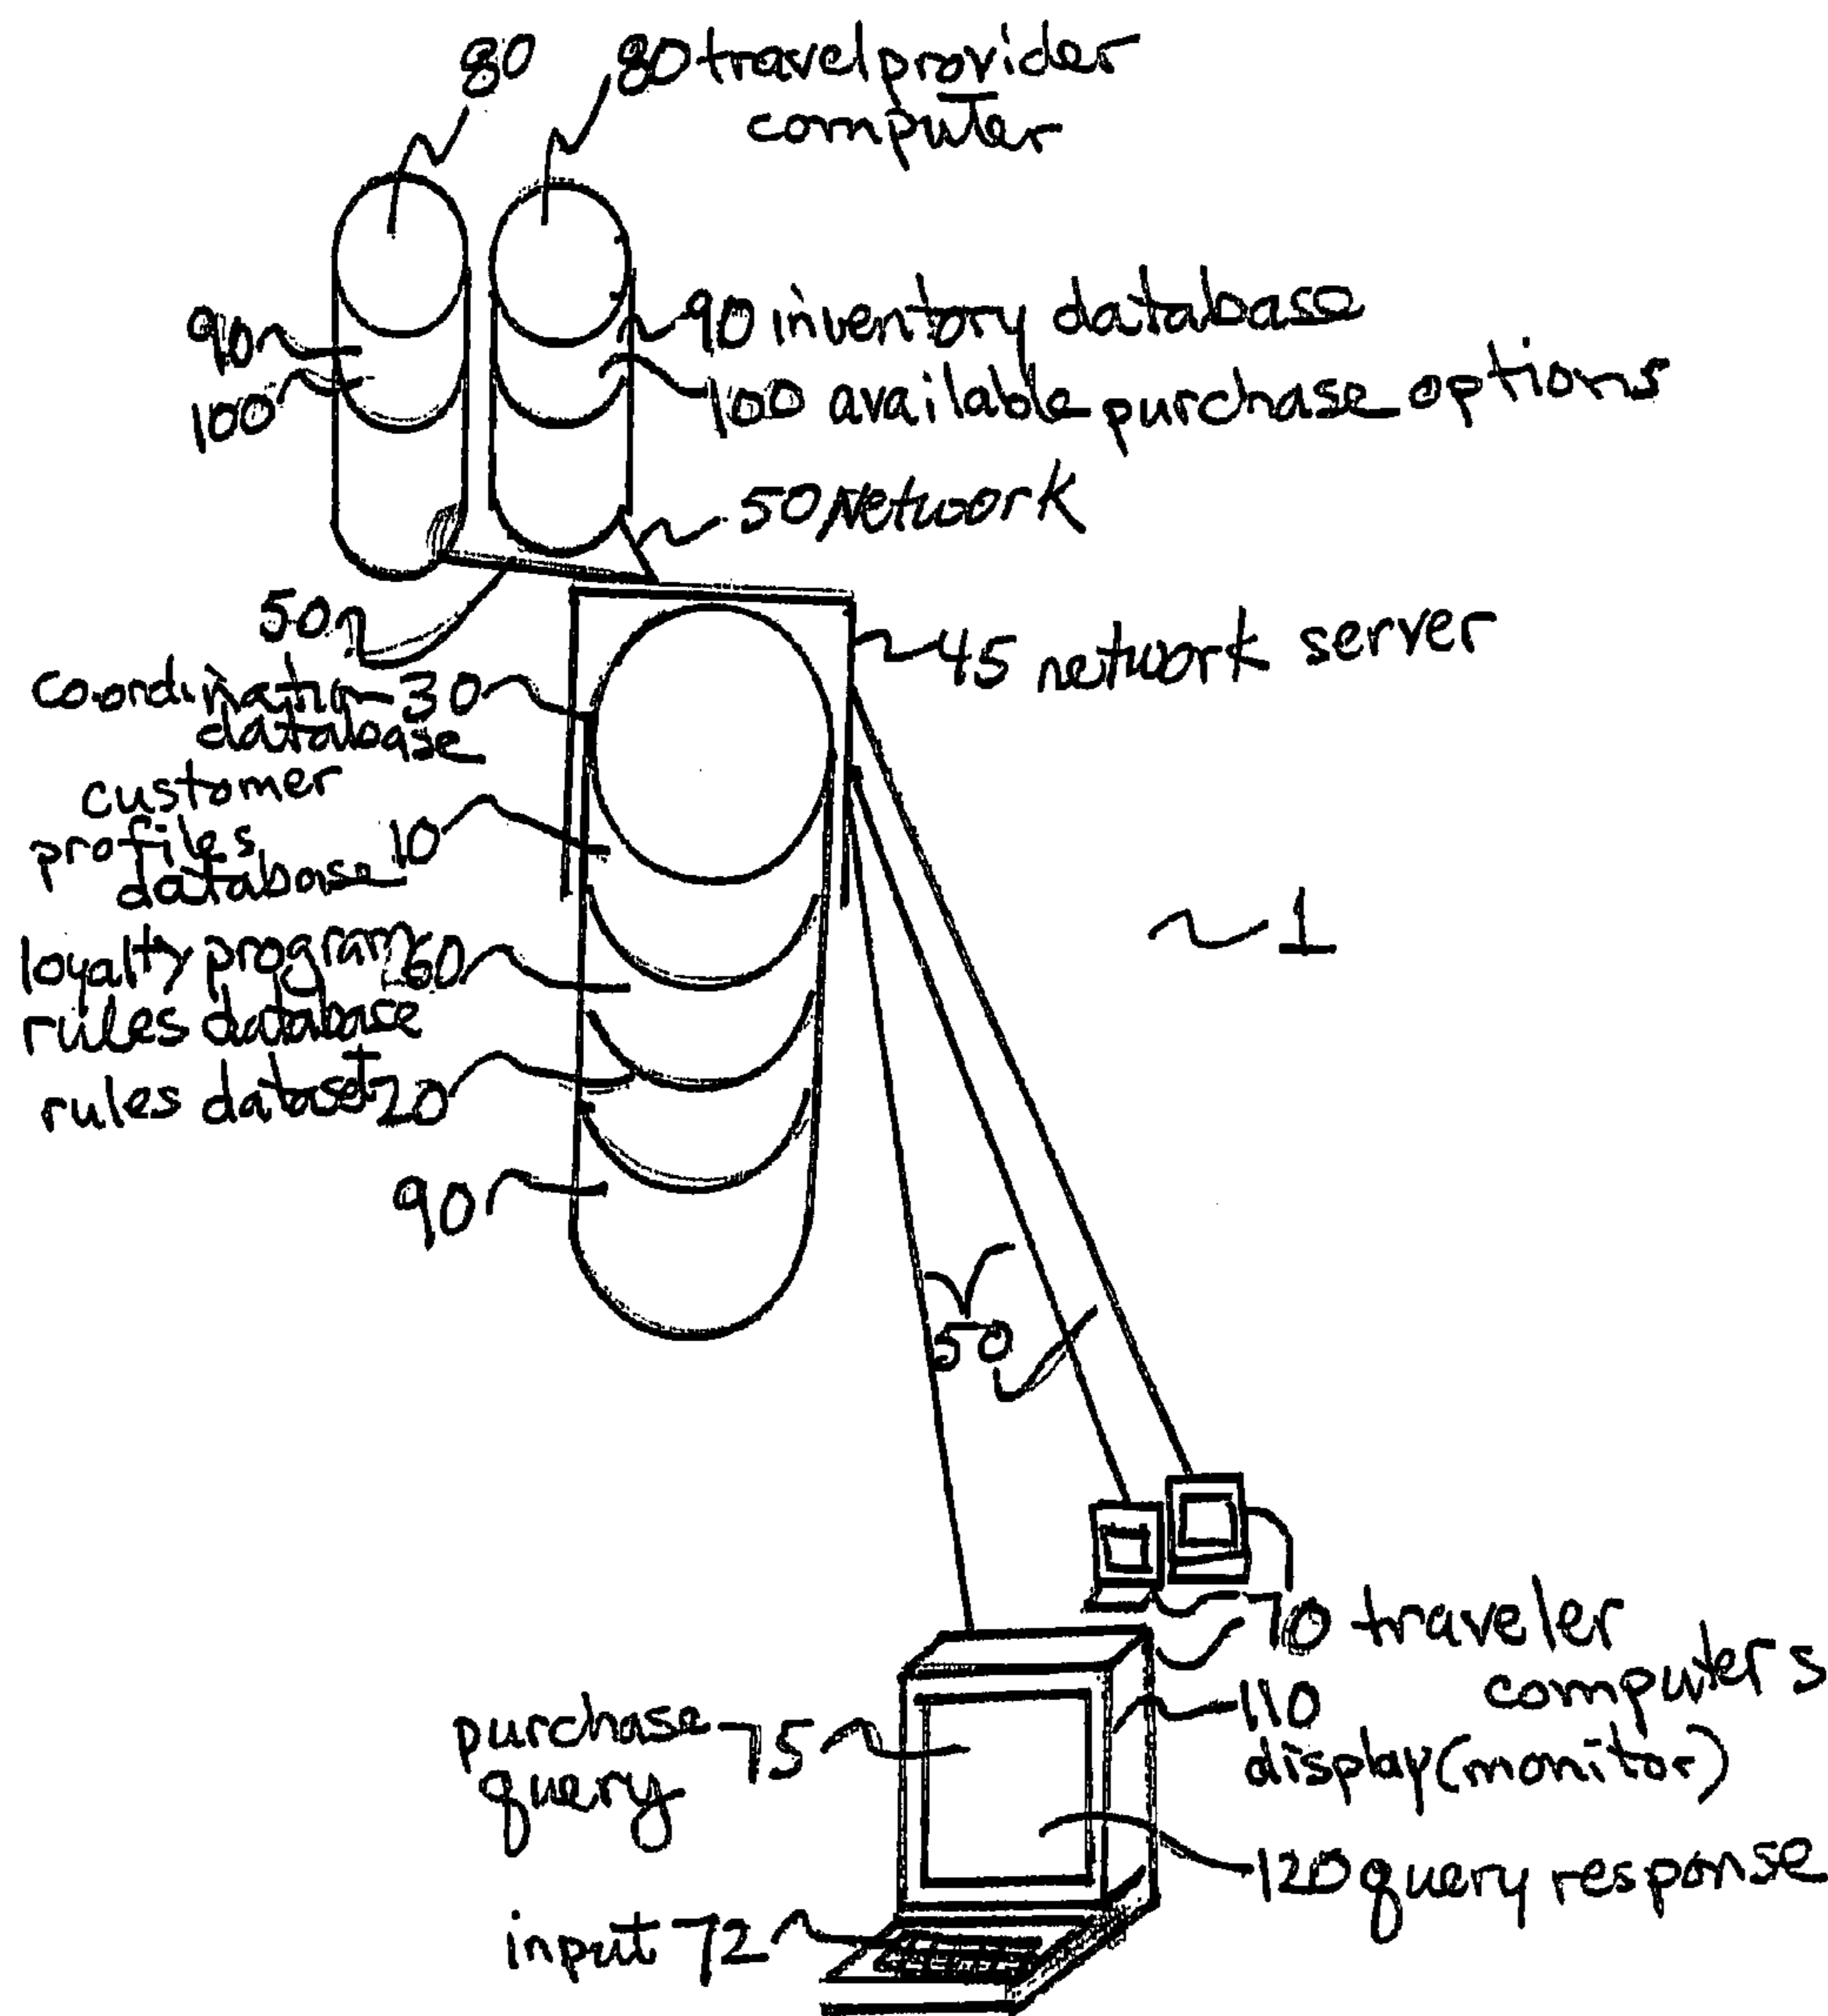 80
80 travel provider
computer
90
90 inventory database
100
100 available purchase options
50 Network
50
45 network server
coordination 30
database
customer
profiles 10
database
1
loyalty program 60
rules database
rules dataset 20
90
50
70 traveler
computers
purchase 75
query
110
display (monitor)
120 query response
input 72